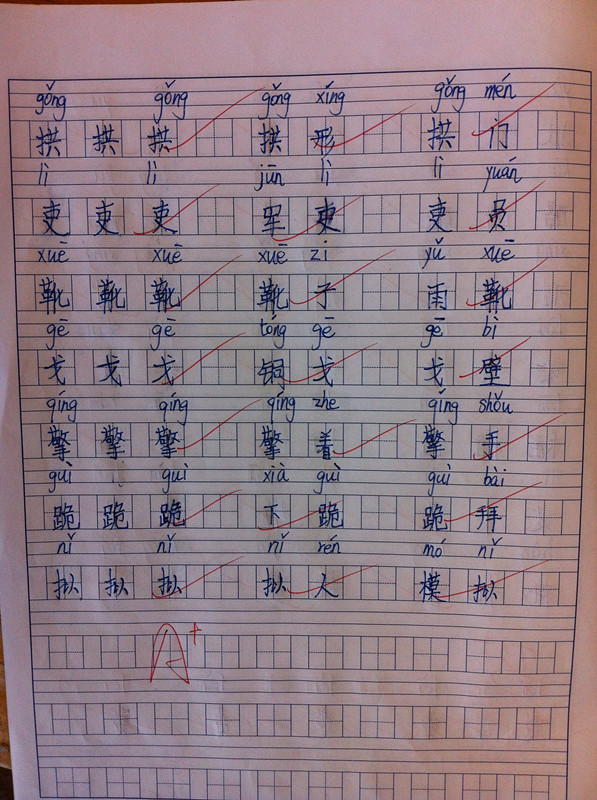 gǒng gǒng gǒng xíng gǒng mén
拱 拱 拱 拱 形 拱 门
lì lì jūn lì lì yuán
吏 吏 吏 军 吏 吏 员
xuē xuē xuē zi yǔ xuē
靴 靴 靴 靴 子 雨 靴
gē gē tóng gē gē bì
戈 戈 戈 铜 戈 戈 壁
qíng qíng qíng zhe qíng shǒu
擎 擎 擎 擎 着 擎 手
guì guì xià guì guì bài
跪 跪 跪 下 跪 跪 拜
nǐ nǐ nǐ rén mó nǐ
拟 拟 拟 拟 人 模 拟
A+